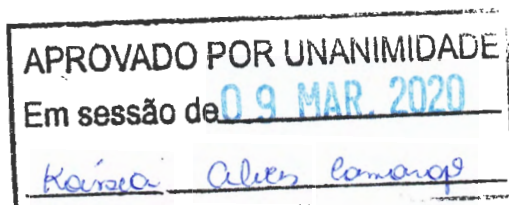 APROVADO POR UNANIMIDADE
Em sessão de 09 MAR. 2020
Alves Camargo